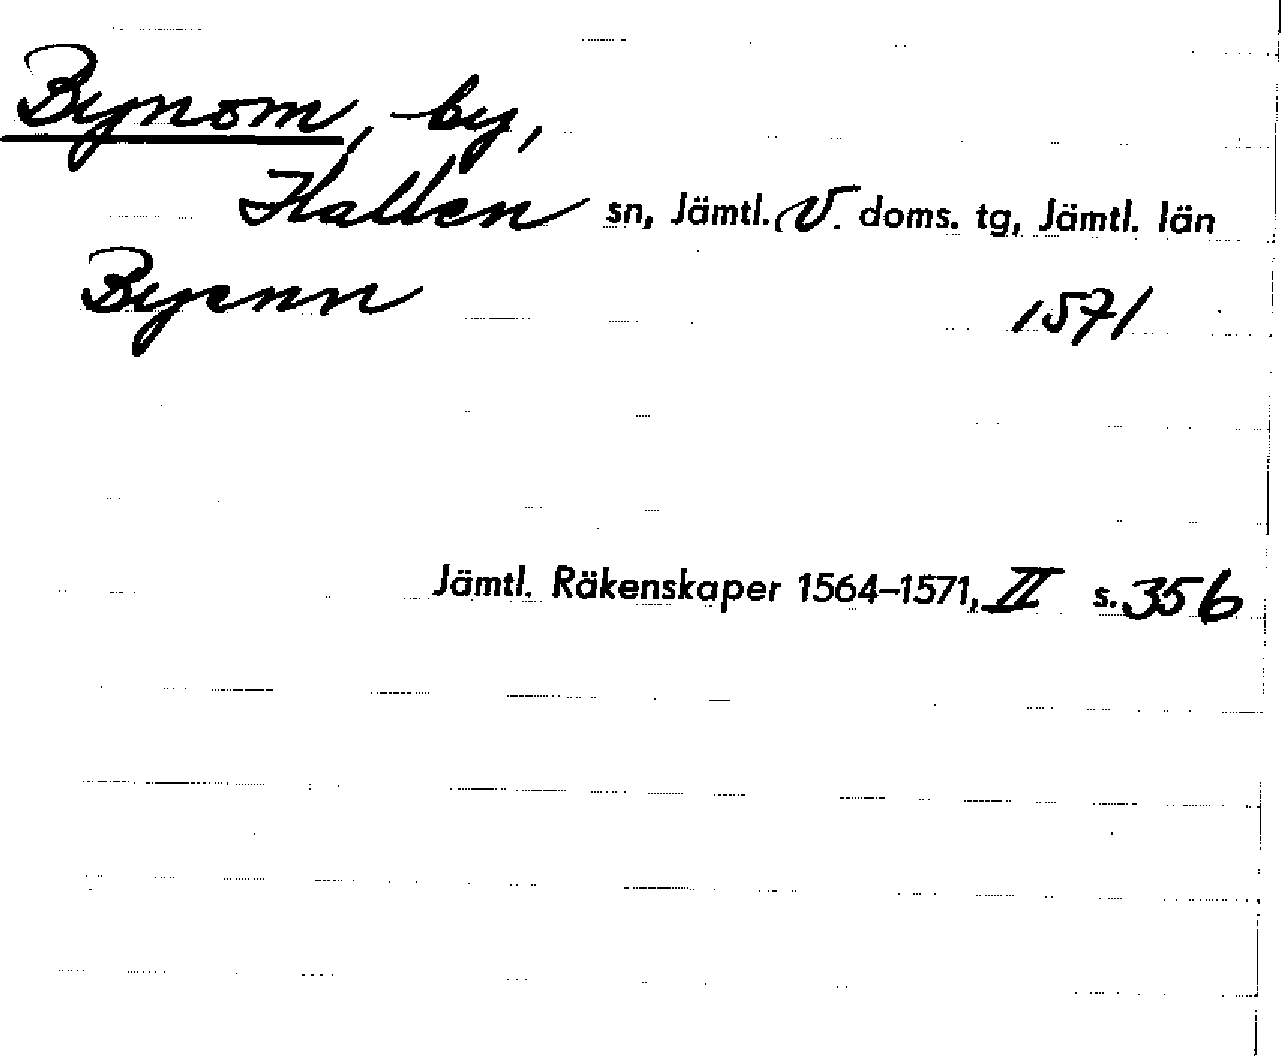 Bynom, by,
Hallen sn, Jämtl. V. doms. tg, Jämtl. län
Byenn 1571
Jämtl. Räkenskaper 1564–1571, II s. 356